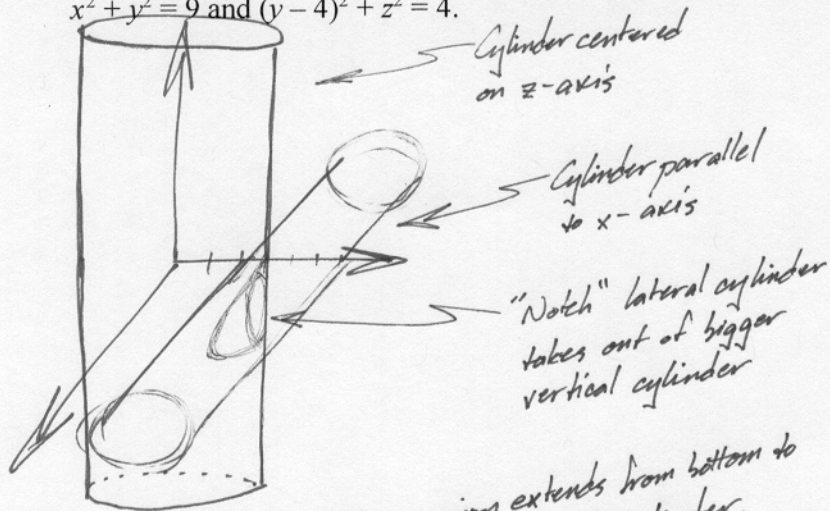 x² + y² = 9 and (y – 4)² + z² = 4.
Cylinder centered
on z-axis
Cylinder parallel
to x-axis
"Notch" lateral cylinder
takes out of bigger
vertical cylinder
extends from bottom to